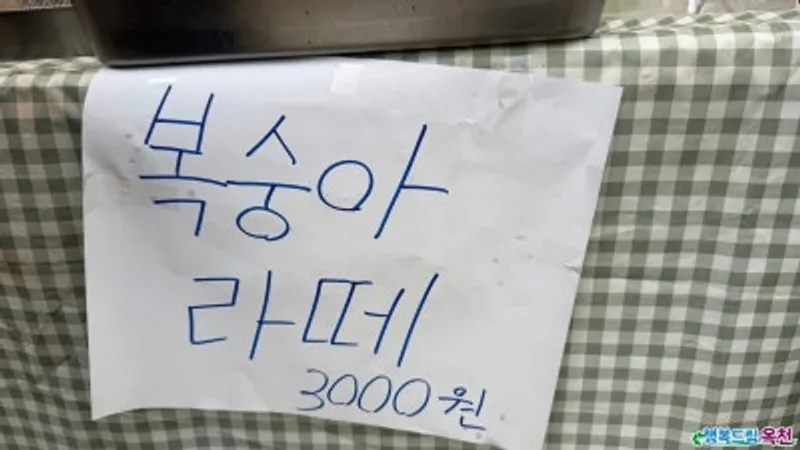 복숭아
라떼
3000원
행복드림 옥천